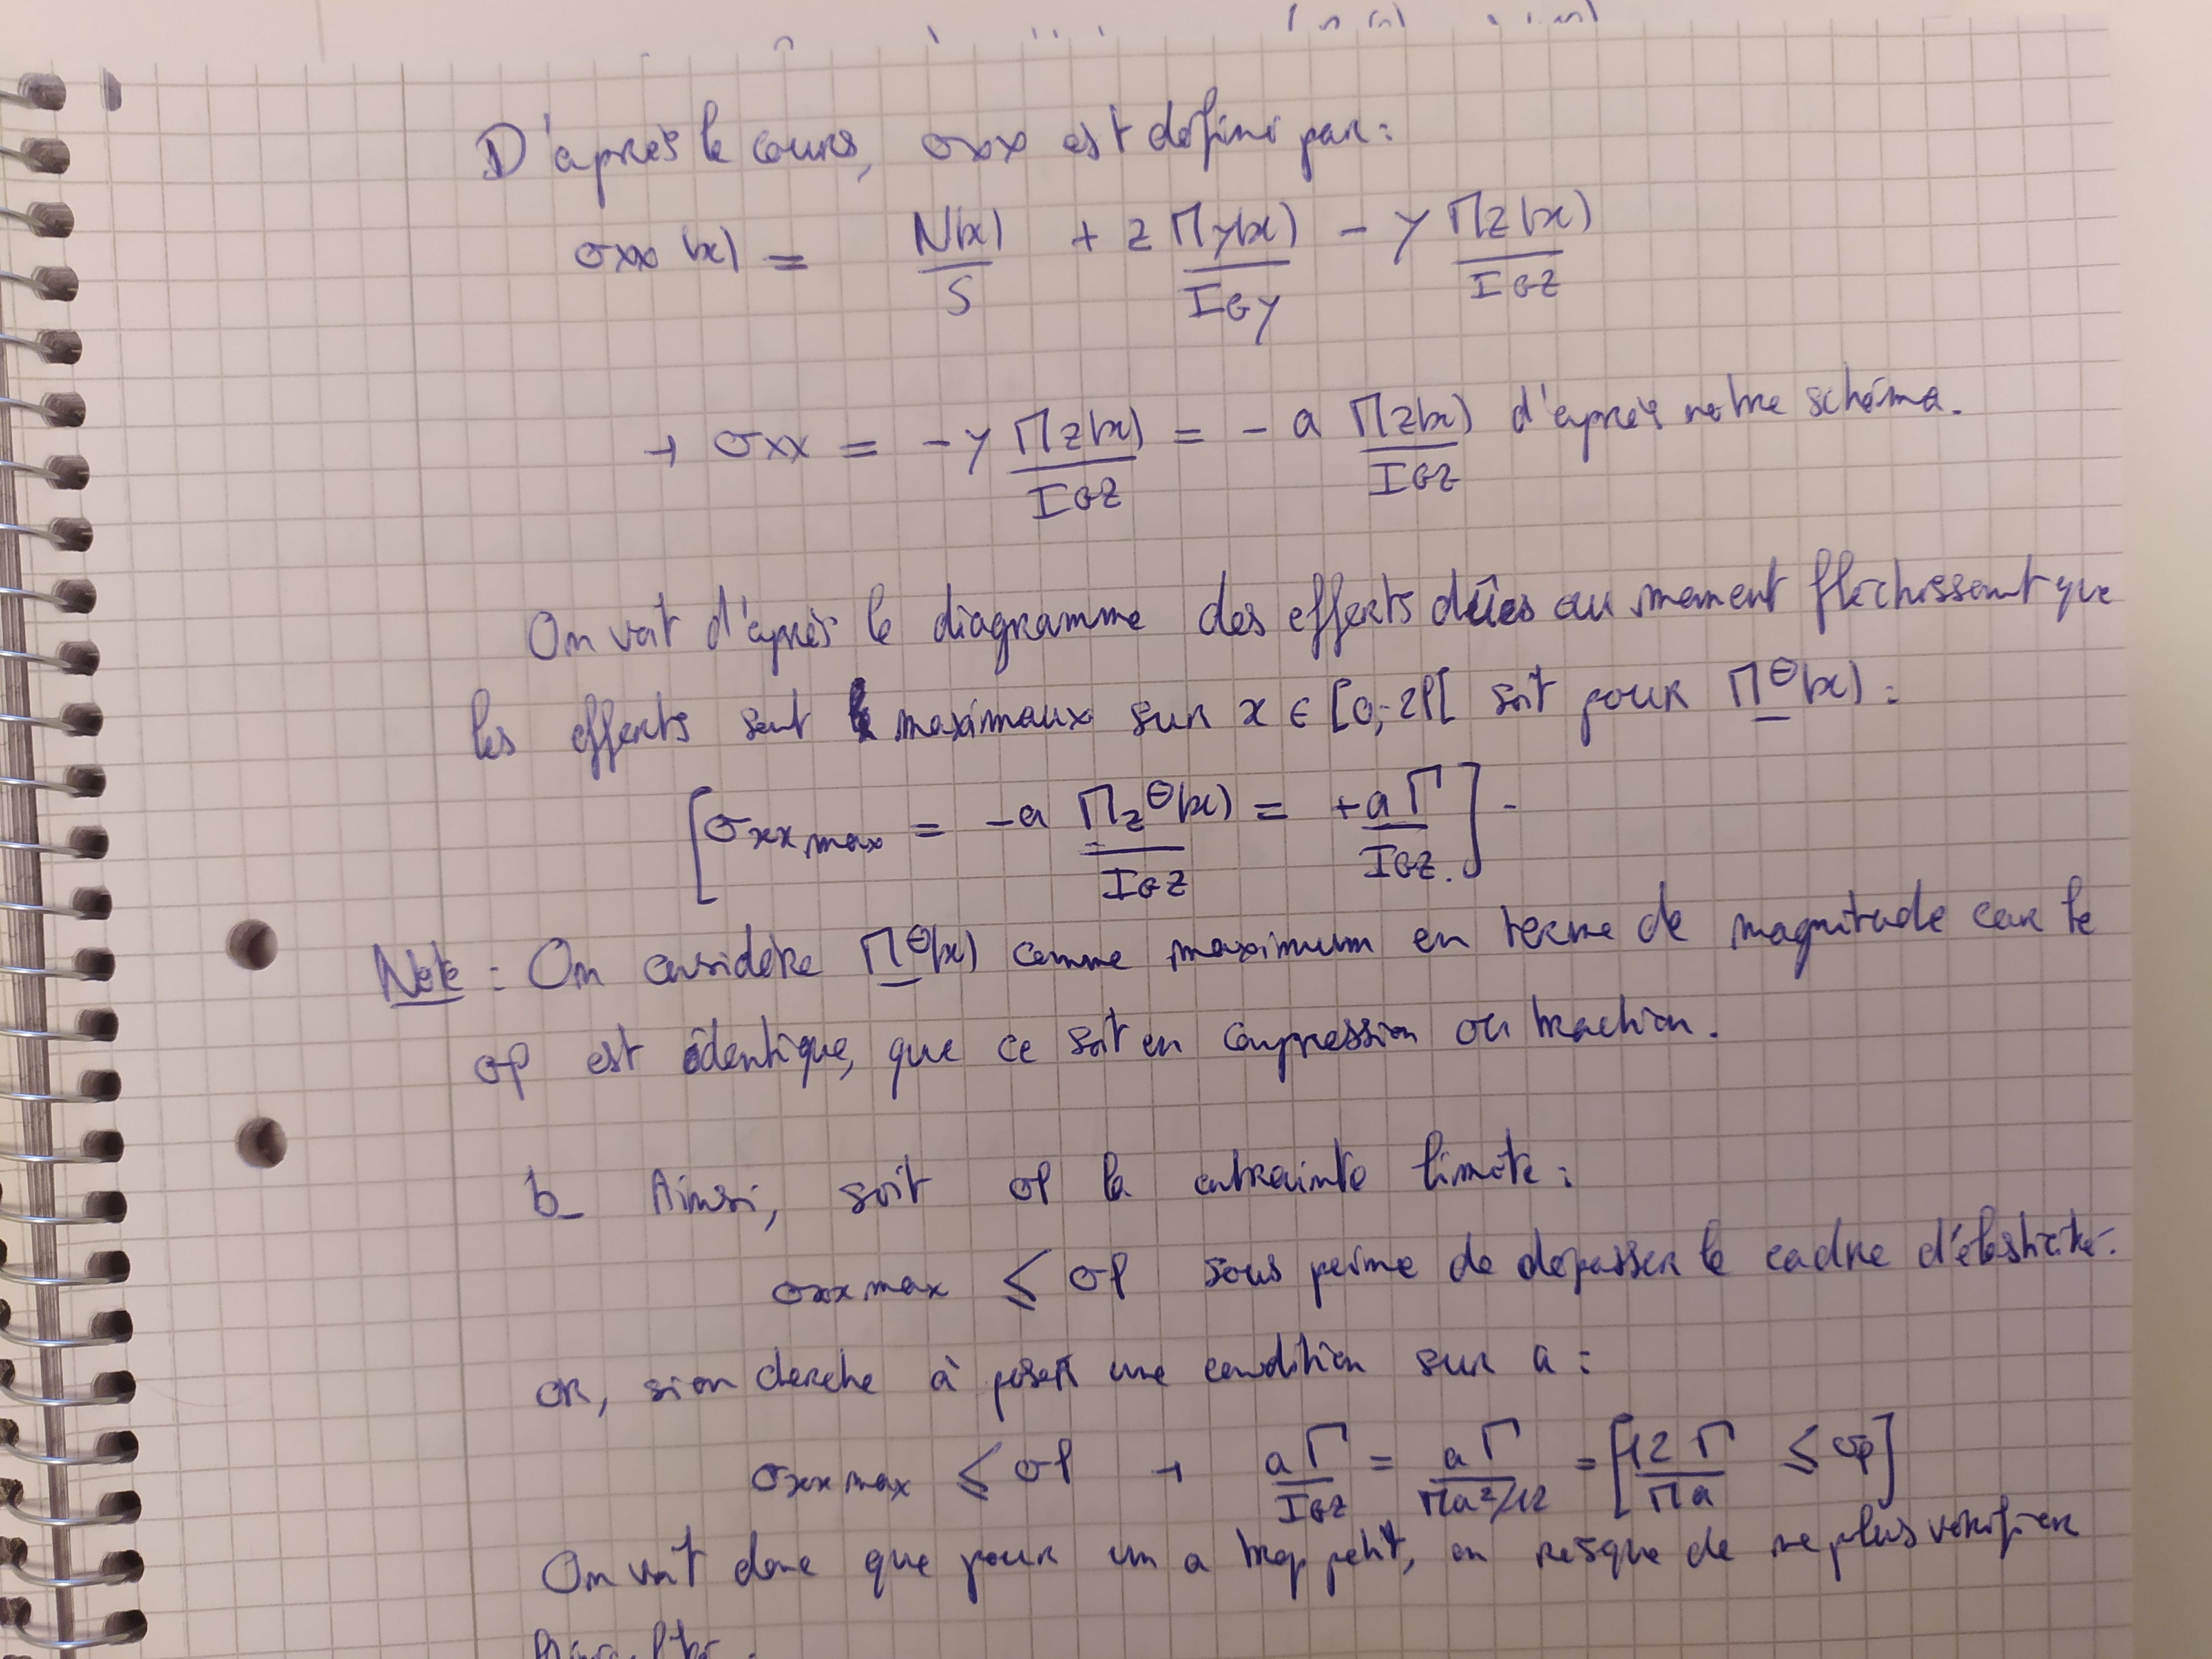 D'après le cours, σxx est défini par :
σxx (x) = N(x)/S + z My(x)/IGy - y Mz(x)/IGZ
→ σxx = - y Mz(x)/IGZ = - a Mz(x)/IGZ d'après notre schéma.
On voit d'après le diagramme des efforts dûes au moment fléchissant que
les efforts sont maximaux sur x ∈ [0; 2l[ soit pour M⊖(x) :
[σxx max = -a Mz⊖(x)/IGZ = +a Γ/IGZ.] -
Note : On considère M⊖(x) comme maximum en terme de magnitude car le
σl est identique, que ce soit en compression ou traction.
b_ Ainsi, soit σl la contrainte limite :
σxx max ≤ σl sous peine de dépasser le cadre d'élasticité.
OR, si on cherche à poser une condition sur a :
σxx max ≤ σl → a Γ/IGZ = a Γ/(Πa²/12) = [12 Γ/Πa ≤ σl]
On voit donc que pour un a trop petit, on risque de ne plus vérifier